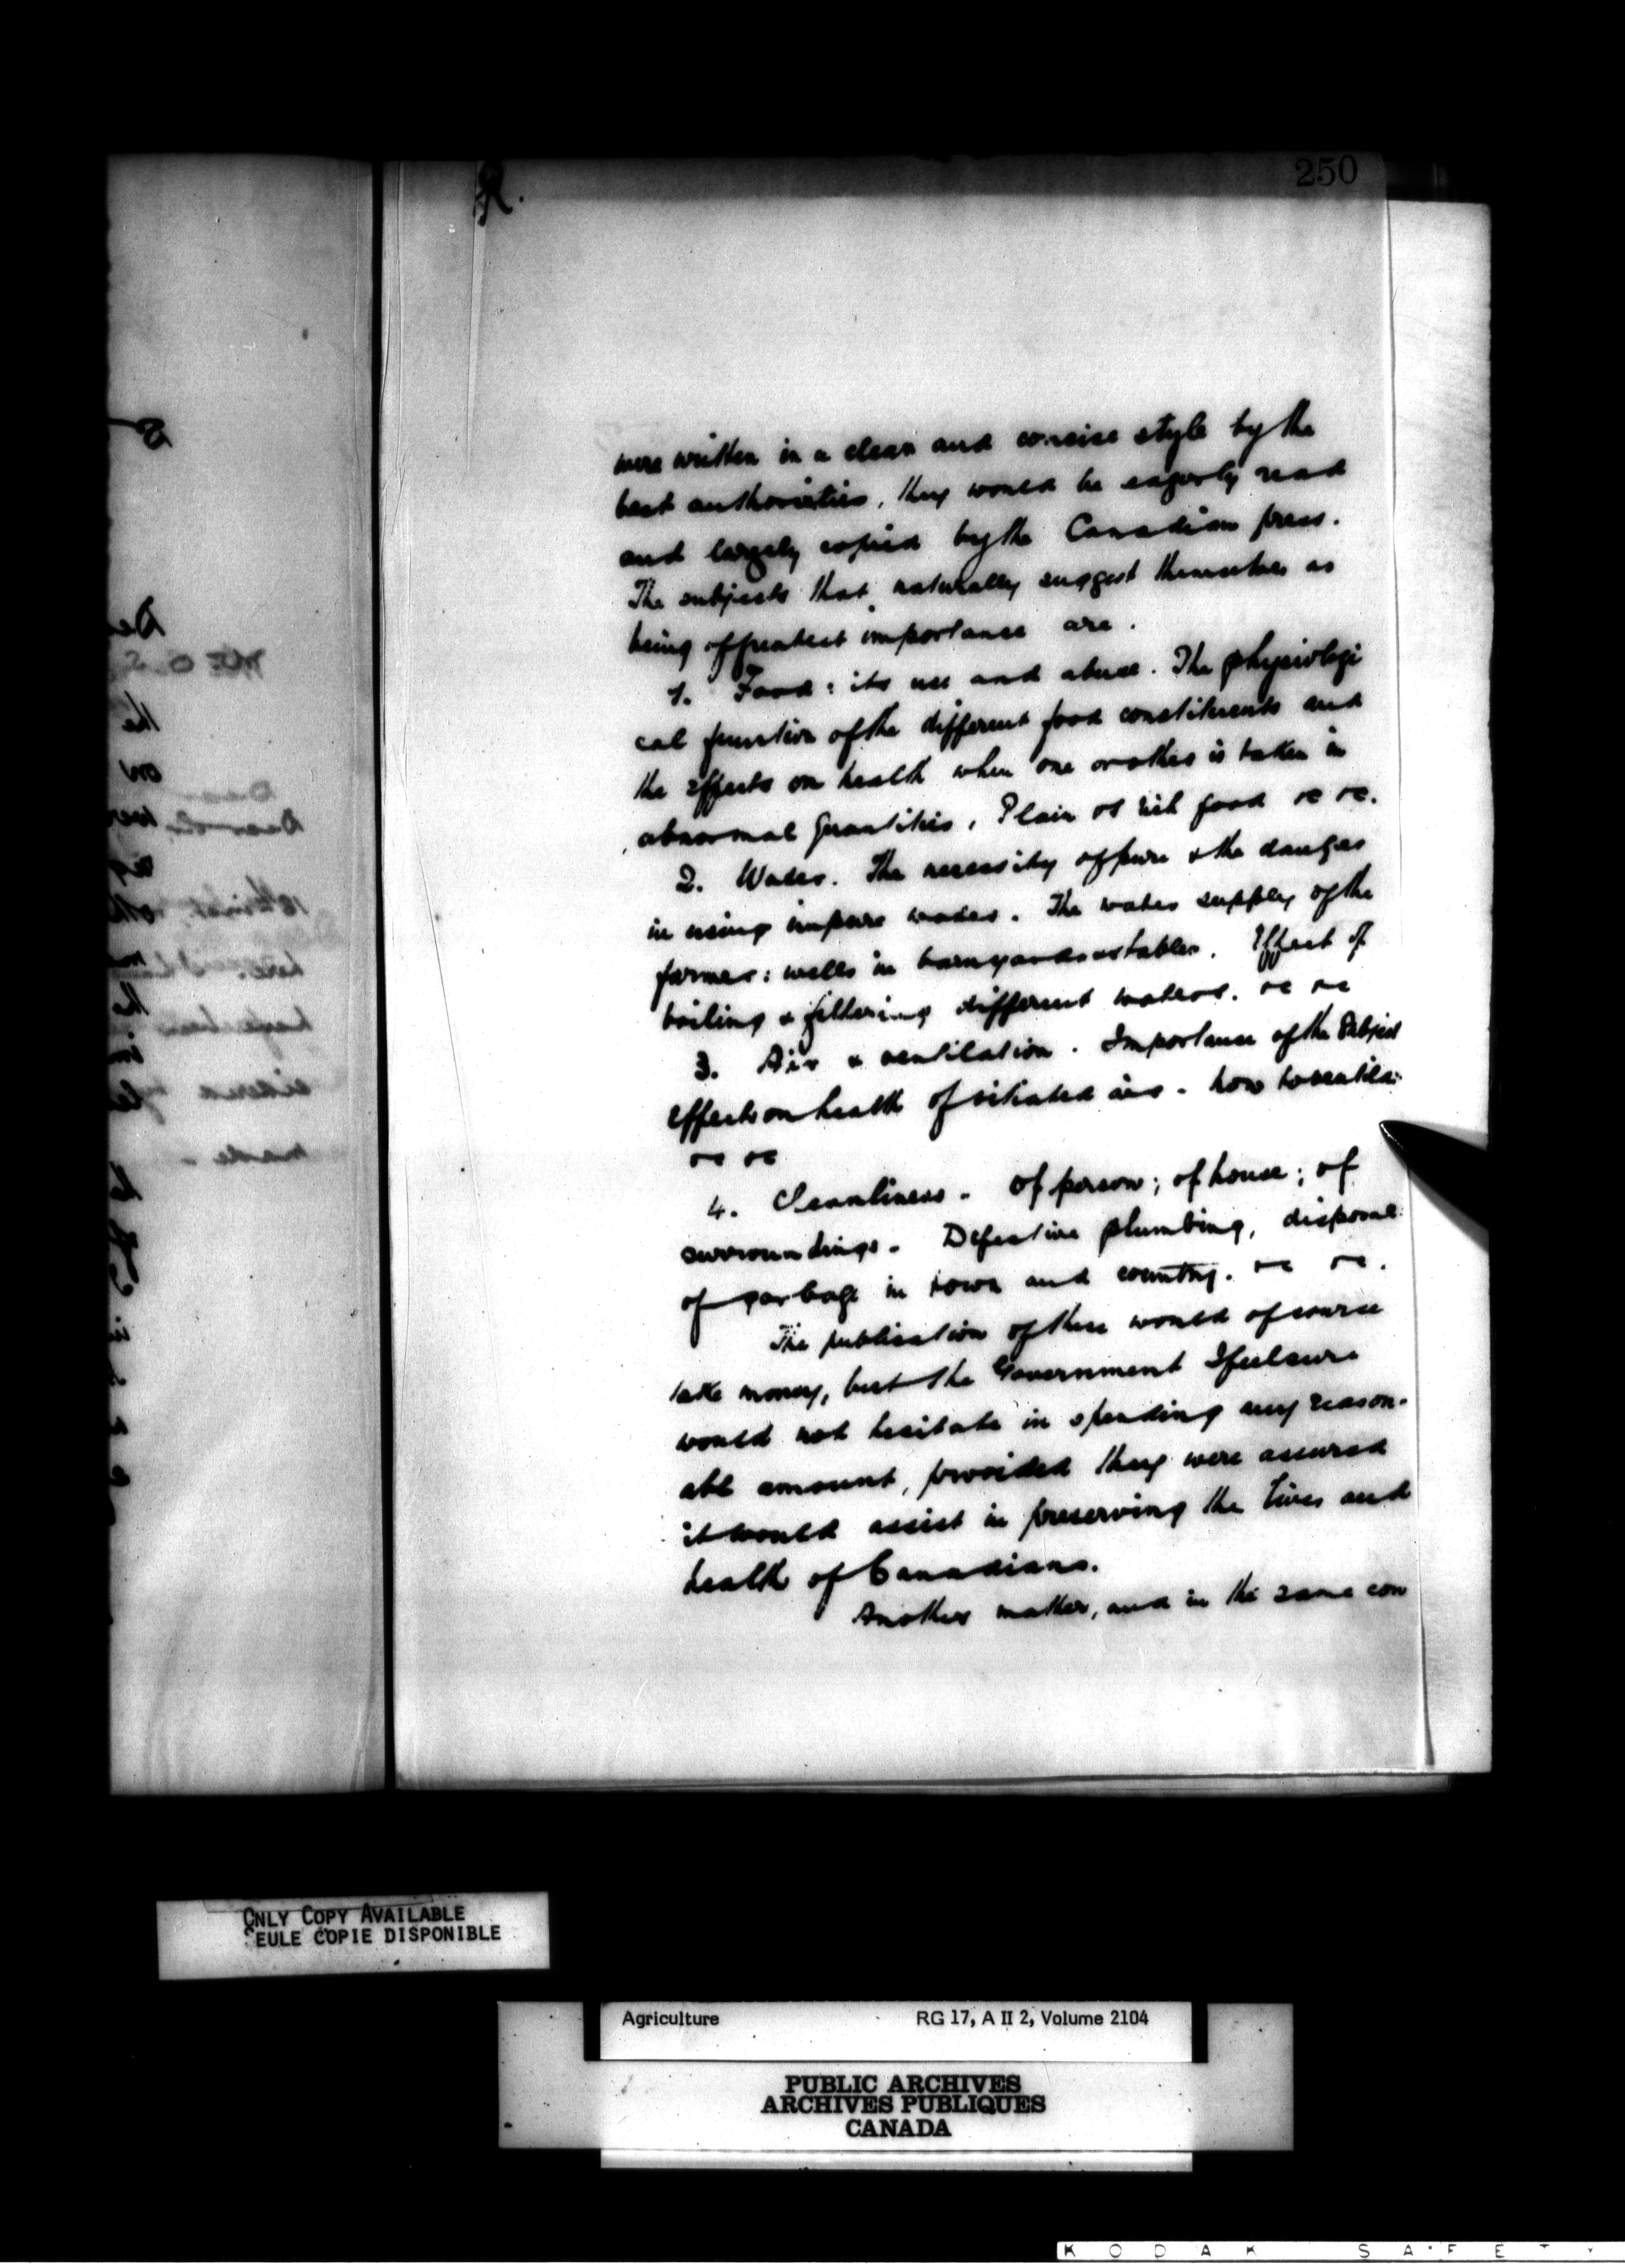 250
were written in a clear and concise style by the
best authorities, they would be eagerly read
and largely copied by the Canadian press.
The subjects that naturally suggest themselves as
being of greatest importance are.
1. Food: its use and abuse. The physiologi
cal function of the different food constituents and
the effects on health when one or other is taken in
abnormal quantities, Plain vs rich food &c &c.
2. Water. The necessity of pure & the danger
in using impure water. The water supply of the
farmer: wells in barnyards & stables. Effect of
boiling & filtering different waters. &c &c
3. Air & ventilation. Importance of the Subject
Effects on health of vitiated air - how to ventila
&c &c
4. Cleanliness. Of person; of house; of
surroundings. Defective plumbing, disposal
of garbage in town and country. &c &c.
The publication of these would of course
take money, but the Government I feel sure
would not hesitate in spending any reason-
able amount, provided they were assured
it would assist in preserving the lives and
health of Canadians.
Another matter, and in the same con
ONLY COPY AVAILABLE
SEULE COPIE DISPONIBLE
Agriculture RG 17, A II 2, Volume 2104
PUBLIC ARCHIVES
ARCHIVES PUBLIQUES
CANADA
KODAK SAFETY